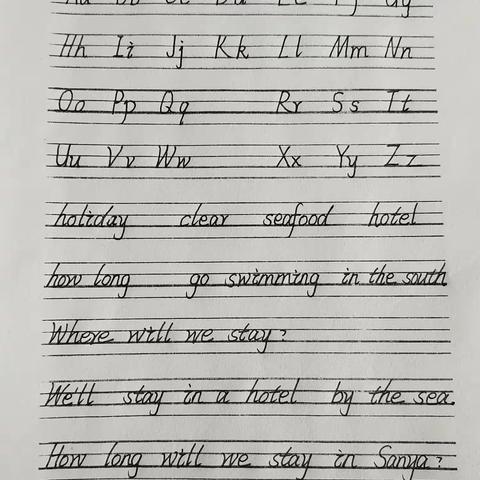 Aa Bb Cc Dd Ee Ff Gg
Hh Ii Jj Kk Ll Mm Nn
Oo Pp Qq Rr Ss Tt
Uu Vv Ww Xx Yy Zz
holiday clear seafood hotel
how long go swimming in the south
Where will we stay?
We'll stay in a hotel by the sea.
How long will we stay in Sanya?